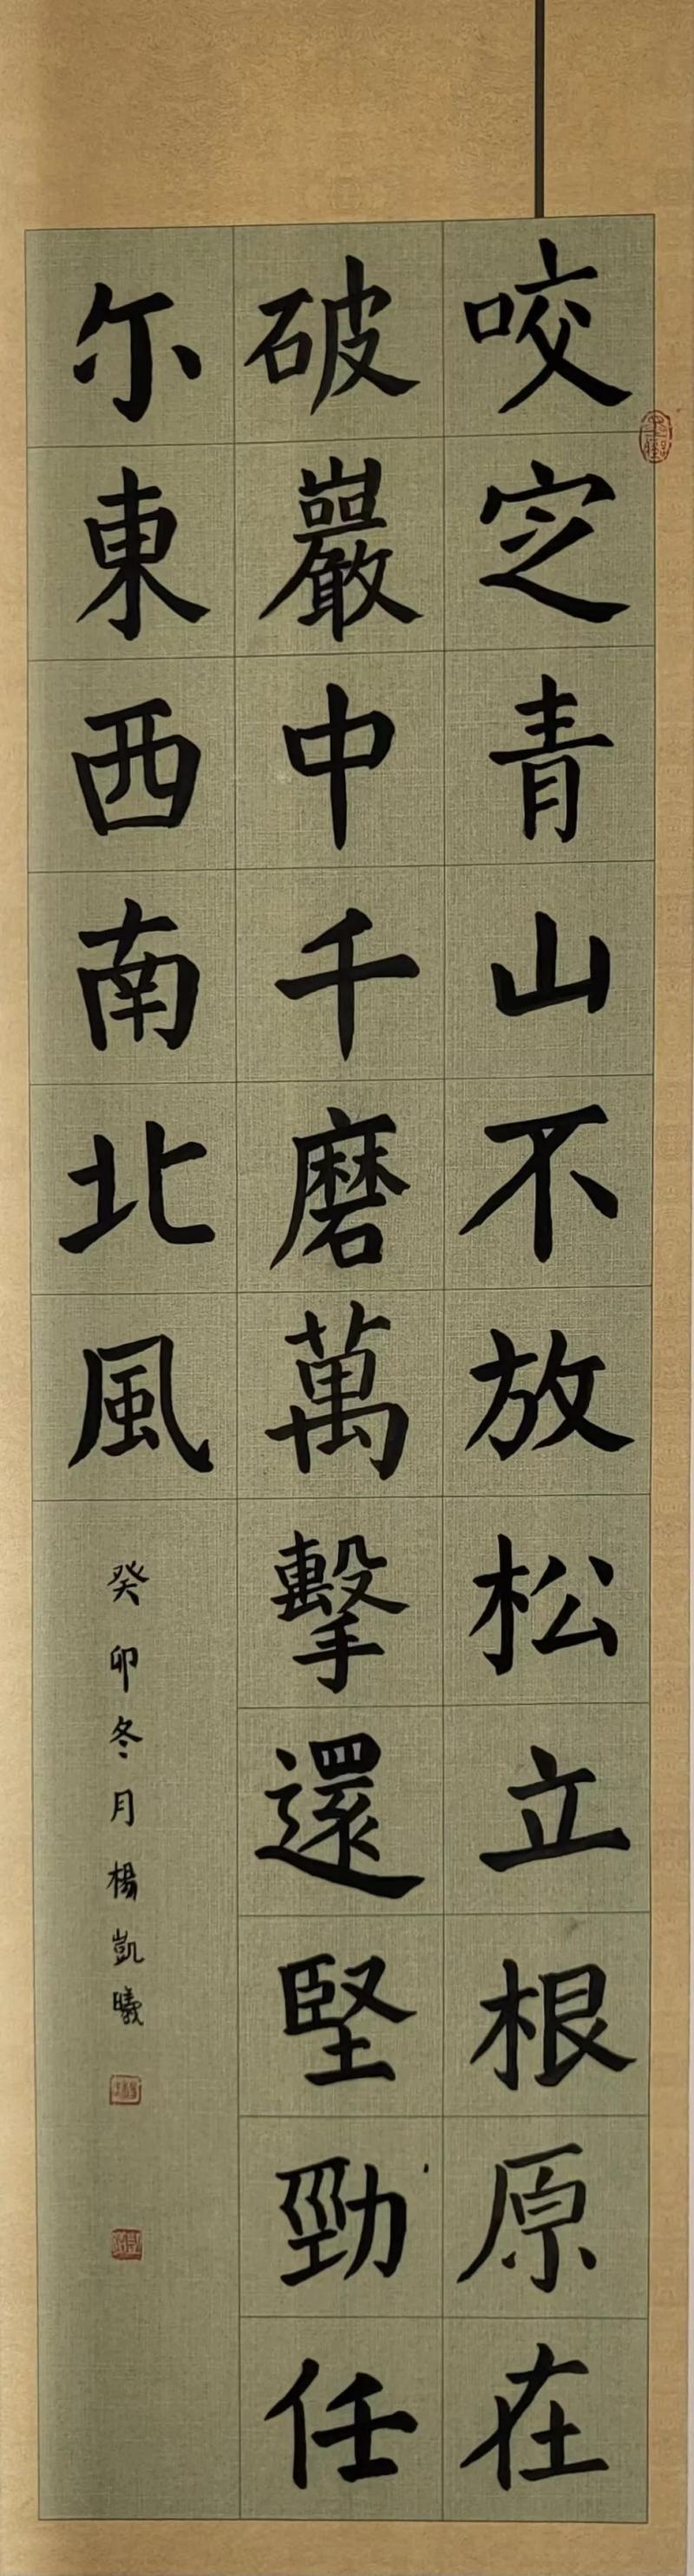 咬定青山不放松立根原在
破巖中千磨萬擊還堅勁任
尓東西南北風
癸卯冬月楊凱曦